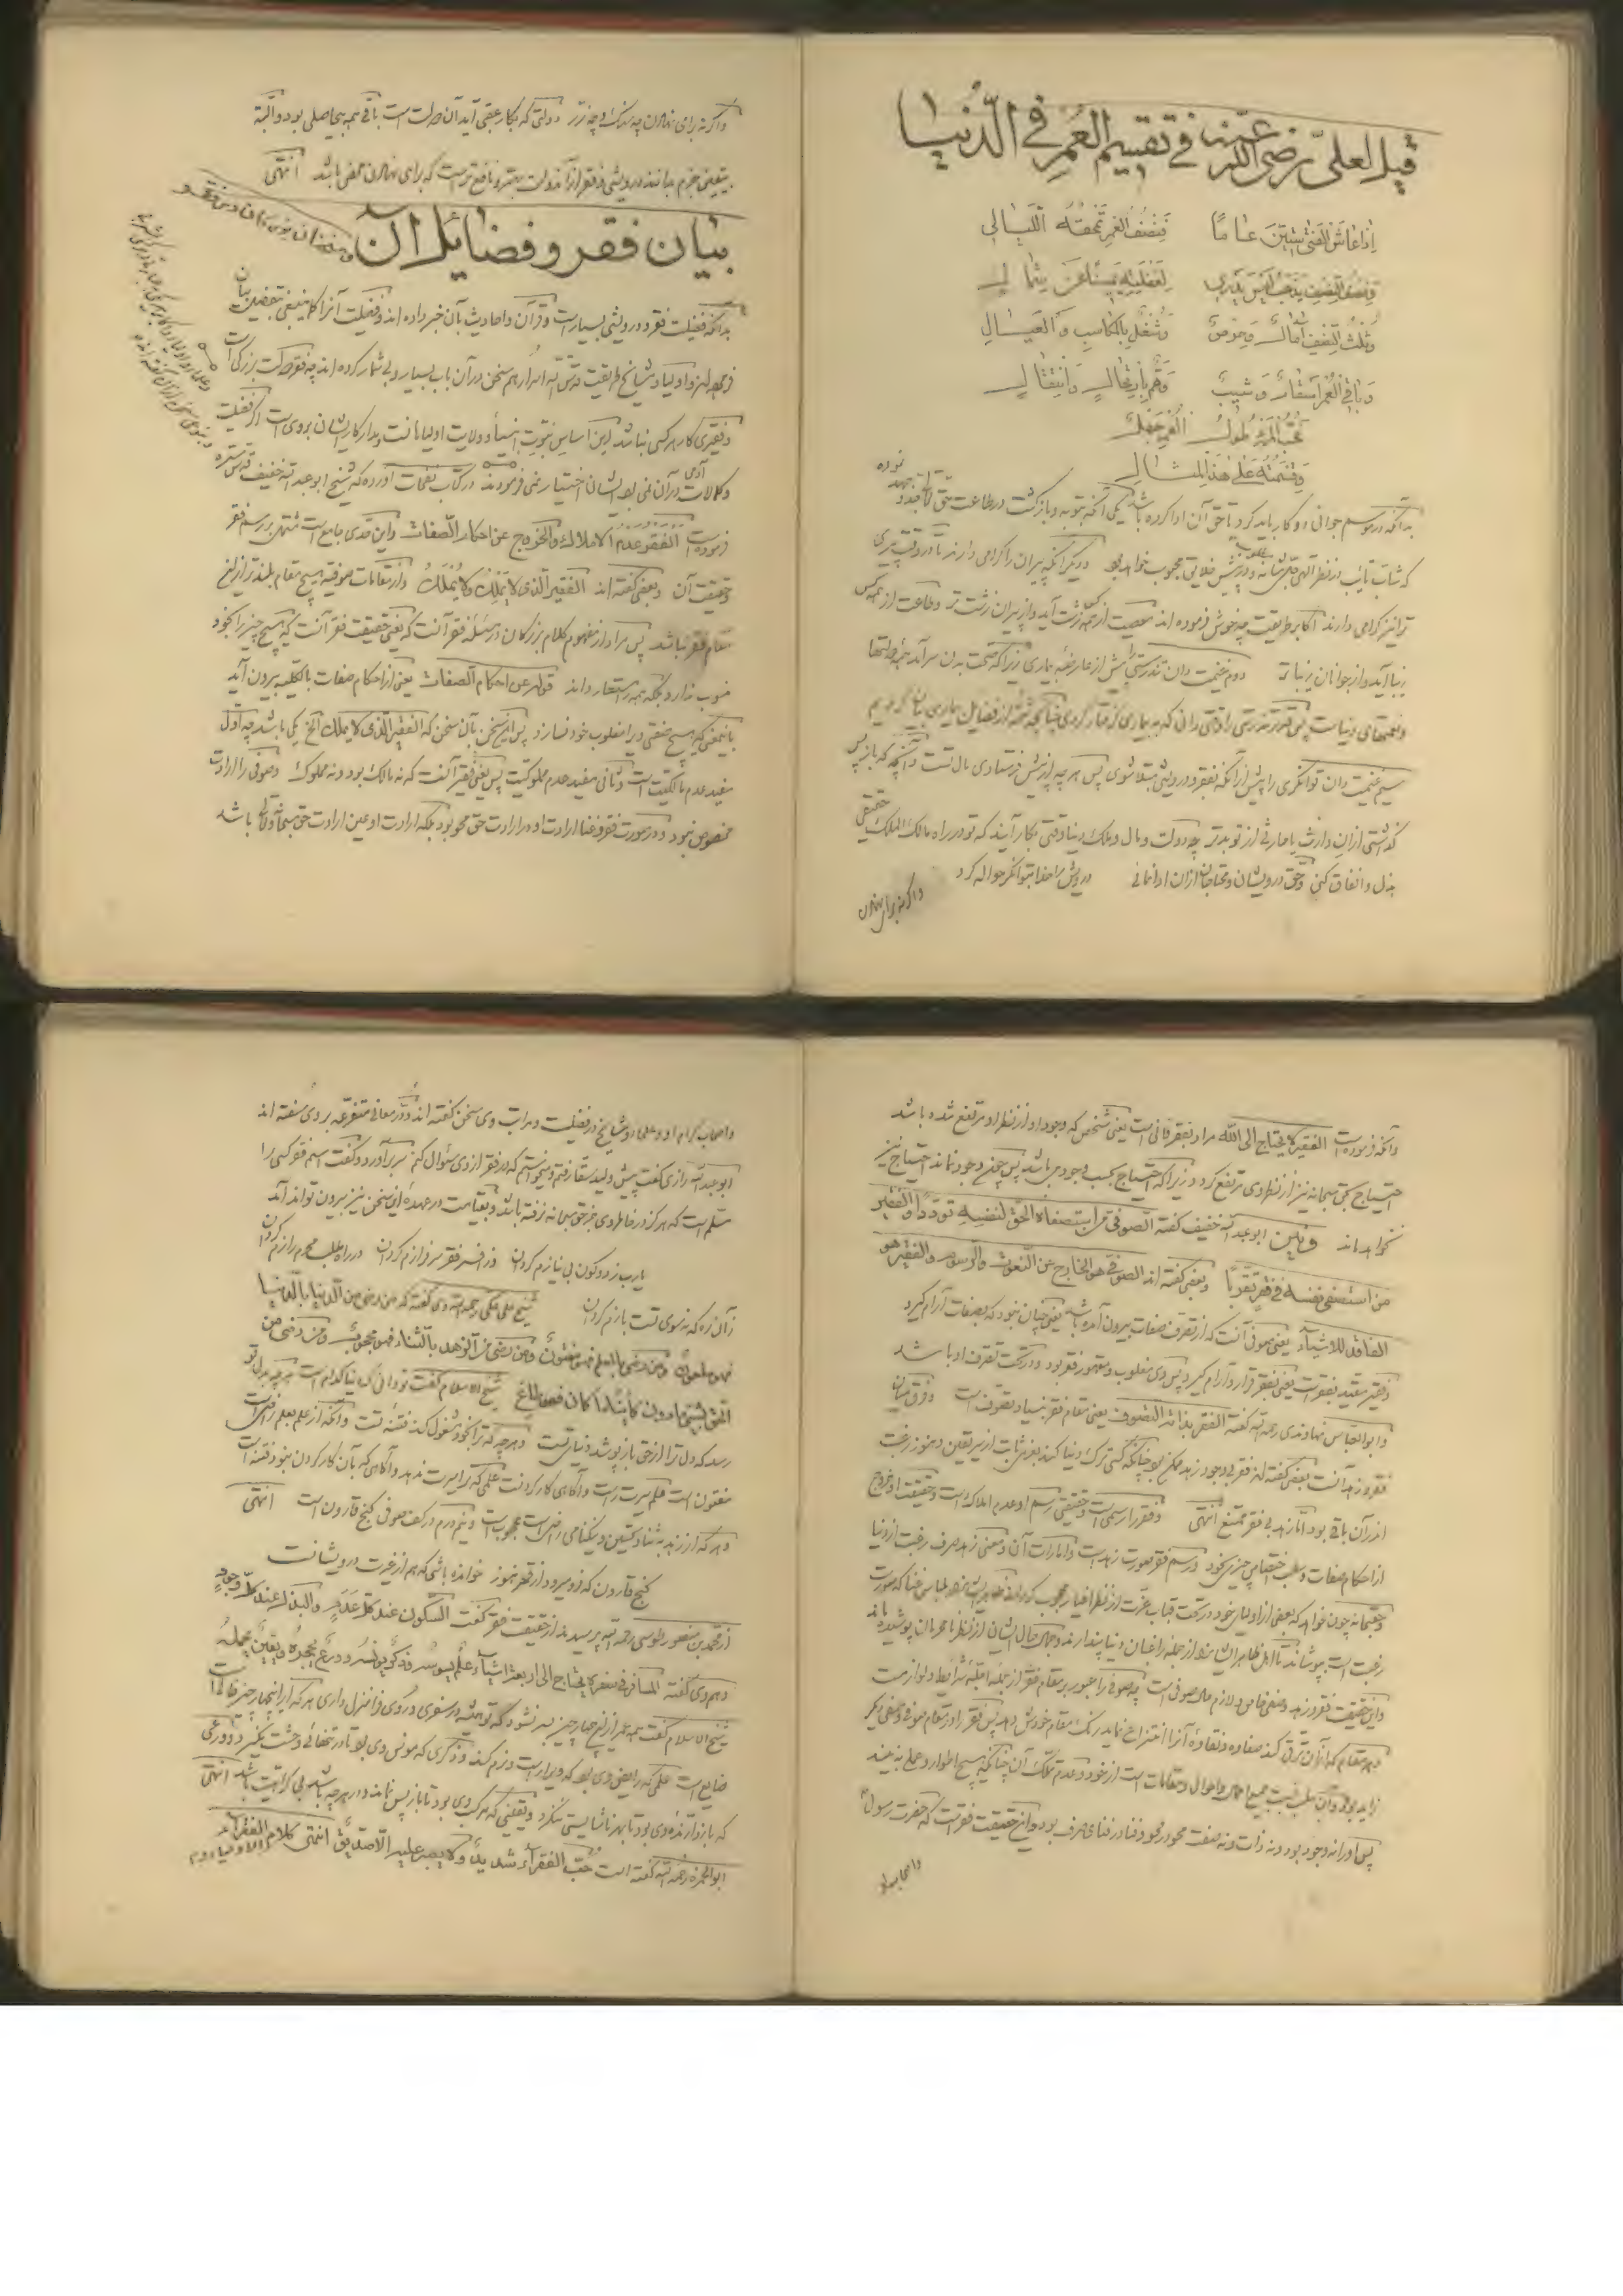 قیل لعلی رضی الله عنه فی تقسیم العمر فی الدنیا
اذا عاش الفتی ستین عاما فنصف العمر تمحقه اللیالی
و نصف النصف یذهب لیس یدری لغفلته یمینا عن شمال
و ثلث النصف آمال و حرص و شغل بالمکاسب و العیال
و باقی العمر اسقام و شیب و هم بارتحال و انتقال
فحب المرء طول العمر جهل
و قسمته علی هذا المثال
بدانکه در موسم جوانی دو کار باید کرد تا حق آن ادا کرده باشد یکی آنکه بتوبه و بازگشت در طاعت حق تعالی جد و جهد نموده
که شاب تایب در نظر الهی جل شانه مطلوب و در پیش خلایق محبوب خواهد بود دیگر آنکه پیران را گرامی دارند تا در وقت پیری
ترا نیز گرامی دارند اکابر طریقت چه خوش فرموده اند معصیت از همه کس زشت آید و از پیران زشت تر و طاعت از همه کس
زیبا آید و از جوانان زیباتر دوم غنیمت دان تندرستی را پیش از عارضه بیماری زیرا که صحت بدن سرآمد همه دولتها
و نعمتهای دنیاست پس قدر تندرستی را وقتی دانی که به بیماری گرفتار گردی چنانچه شمه از فضایل بیماری بیان کردیم
سیم غنیمت دان توانگری را پیش از آنکه بفقر و درویشی مبتلا شوی پس هر چه از پیش فرستادی مال تست و آنچه که باز پس
گذاشتی از آن وارث یا حادثی از تو بدتر چه دولت و مال و ملک دنیا وقتی بکار آیند که تو در راه مالک الملک حقیقی
بذل و انفاق کنی و حق درویشان و محتاجان از آن ادا نمائی درویش را خدا بتوانگر حواله کرد
واگرنه برای نهادن
واگرنه برای نهادن چه سنگ و چه زر دولتی که بکار عقبی آید آن دولت است باقی همه بیحاصلی بود و البته
بیقین جزم بدانند درویشی و فقر از آن دولت بهتر و نافع تر است که برای نهادن محض باشد انتهی
بیان فقر و فضایل آن
بدانکه فضیلت فقر و درویشی بسیار است و قرآن و احادیث بآن خبر داده اند و فضیلت آنرا کما ینبغی بتفصیل بیان
فرموده اند و اولیا و مشایخ طریقت قدس الله اسرارهم سخن در آن باب بسیار و بی شمار کرده اند چه فقر دولت بزرگی است
و فقیری کار هر کسی نباشد این اساس نبوت انبیا و ولایت اولیا است و مدار کار ایشان بر وی است اگر فضیلت
و کمالات آدمی در آن نمی بود ایشان اختیار نمی فرمودند در کتاب نفحات آورده که شیخ ابو عبدالله خفیف قدس سره
فرموده است الفقر عدم الاملاک و الخروج عن احکام الصفات و این حدی جامع است مشتمل بر رسم فقر
و حقیقت آن و بعضی گفته اند الفقیر الذی لا یملک و لا یملک و از مقامات صوفیه هیچ مقام بلندتر از
مقام فقر نباشد پس مراد از مفهوم کلام بزرگان در مسئله فقر آنست که یعنی حقیقت فقر آنست که هیچ چیز را بخود
منسوب ندارد بلکه همه را مستعار داند قوله عن احکام الصفات یعنی از احکام صفات بالکلیه بیرون آید
باینمعنی که هیچ صفتی ویرا مغلوب خود نسازد پس این سخن بآن سخن که الفقیر الذی لا یملک الخ یکی باشد چه اول
مفید عدم مالکیت است و ثانی مفید عدم مملوکیت پس یعنی فقیر آنست که نه مالک بود و نه مملوک و صوفی را ارادت
مخصوص نبود و در صورت فقر و غنا ارادت او در ارادت حق محو بود بلکه ارادت او عین ارادت حق سبحانه و تعالی باشد
و آنکه فرموده است الفقیر لا یحتاج الی الله مراد بفقر فانی است یعنی شخصی که وجود او از نظر او مرتفع شده باشد
احتیاج بحق سبحانه نیز از نظر وی مرتفع گردد زیرا که احتیاج بحسب وجود می باشد پس چون وجود نماند احتیاج نیز
نخواهد ماند و نیز ابو عبدالله خفیف گفته الصوفی من استصفاه الحق لنفسه توددا و الفقیر
من استصفی نفسه فی فقره تقربا و بعضی گفته اند الصوفی هو الخارج عن النعوت و الرسوم و الفقیر هو
الفاقد للاشیاء یعنی صوفی آنست که از تصرف صفات بیرون آمده باشد یعنی چنان نبود که بصفات آرام گیرد
و فقیر مقید بفقر است یعنی بفقر قرار و آرام گیرد پس وی مغلوب و مقهور فقر بود و در تحت تصرف او باشد
و ابو العباس نهاوندی رحمه الله گفته الفقر بدایة التصوف یعنی مقام فقر بنیاد تصوف است و فرق میان
فقر و زهد آنست بعضی گفته اند فقر بی وجود زهد ممکن بود چنانکه کسی ترک دنیا کند بعزم ثابت از سر یقین و هنوز رغبت
اندر آن باقی بود اما زهد بی فقر ممتنع انتهی و فقر را رسمی است و حقیقتی رسم او عدم املاک است و حقیقت او خروج
از احکام صفات و سلب اختصاص چیزی بخود و رسم فقر صورت زهد است و امارات آن و معنی زهد صرف رغبت از دنیا
و حق سبحانه چون خواهد که بعضی از اولیای خود در تحت قباب عزت از نظر اغیار محجوب گرداند ظاهر ایشان را بلباس غنا که صورت
رغبت است بپوشاند تا اهل ظاهر ایشان را از جمله راغبان دنیا پندارند و جمال حال ایشان از نظر نامحرمان پوشیده ماند
و این حقیقت فقر و زهد وصفی خاص و لازم حال صوفی است چه صوفی را عبور بر مقام فقر از جمله شرایط و لوازمست
و هر مقام که از آن ترقی کند صفاوه و نقاوه آنرا انتزاع نماید و رنگ مقام خودش دهد پس فقر را در مقام صوفی وصفی دیگر
زاید بود و آن سلب نسبت جمیع اعمال و احوال و مقامات است از خود و عدم تملک آن چنانکه هیچ اطوار و عملی نه بیند
پس او را نه وجود بود و نه ذات و نه صفت محو در محو و فنا در فنا صرف بود و این حقیقت فقر است که حضرت رسول
و اصحاب او
و اصحاب کرام او و علما و مشایخ در فضیلت و مراتب وی سخن گفته اند و در معانی متفرعه بر وی سفته اند
ابو عبدالله رازی گفت پیش ولید سقا رفتم و میخواستم که در فقر از وی سؤال کنم سر برآورد و گفت اسم فقر کسی را
مسلم است که هرگز در خاطر وی جز حق سبحانه نرفته باشد و بقیامت در عهده این سخن نیز بیرون تواند آمد
یا رب ز دو کون بی نیازم گردان وز افسر فقر سرفرازم گردان در راه طلب محرم رازم گردان
زان ره که نه سوی تست بازم گردان شیخ علی مکی رحمه الله وی گفته که من رضی من الدنیا بالدنیا
فهو ملعون و من رضی بالعلم فهو مفتون و من رضی من الزهد بالثناء فهو محجوب و من رضی من
الحق بشیء مادون کاینا ما کان فهو طاغ شیخ الاسلام گفت تو دانی که دنیا کدام است هر چه بدل تو
رسد که دل ترا از حق باز پوشد دنیای تست و هر چه که ترا بخود مشغول کند فتنه تست و آنکه از علم بعلم راضی است
مفتون است علم سیرت راست و آگاهی کار کردنست علمی که ترا سیرت ندهد و آگاهی که بآن کار کردن نبود فتنه است
و هر که از زهد به ثنا و تحسین و نیکنامی راضی است محجوب است و نیم درم در کف صوفی گنج قارون است انتهی
گنج قارون که فرو میرود از قعر هنوز خوانده باشی که هم از غیرت درویشانست
از محمد بن منصور طوسی رحمه الله پرسیدند از حقیقت فقر گفت السکون عند کل عدم و البذل عند کل وجود
و هم وی گفته المسافر فی سفره یحتاج الی اربعة اشیاء علم یسوسه و ذکر یونسه و ورع یحجزه و یقین یحمله
شیخ الاسلام گفت همه عمر ازین چهار چیز بسر نشود که تو همیشه در سفری و روی فرا منزل داری هر که را اینچهار چیز فات است
ضایع است علمی که رایض وی بود که ویرا راست و نرم کند و ذکری که مونس وی بود تا در تنهائی وحشت نگیرد و ورعی
که بازدارنده وی بود تا بهر ناشایستی ننگرد و یقینی که مرکب وی بود تا باز پس نماند و در هر چه باشد بی کراهیت باشد انتهی
ابو الحمزه رحمه الله گفته است حب الفقراء شدید و لا یصبر علیه الا صدیق انتهی کلام الفقراء